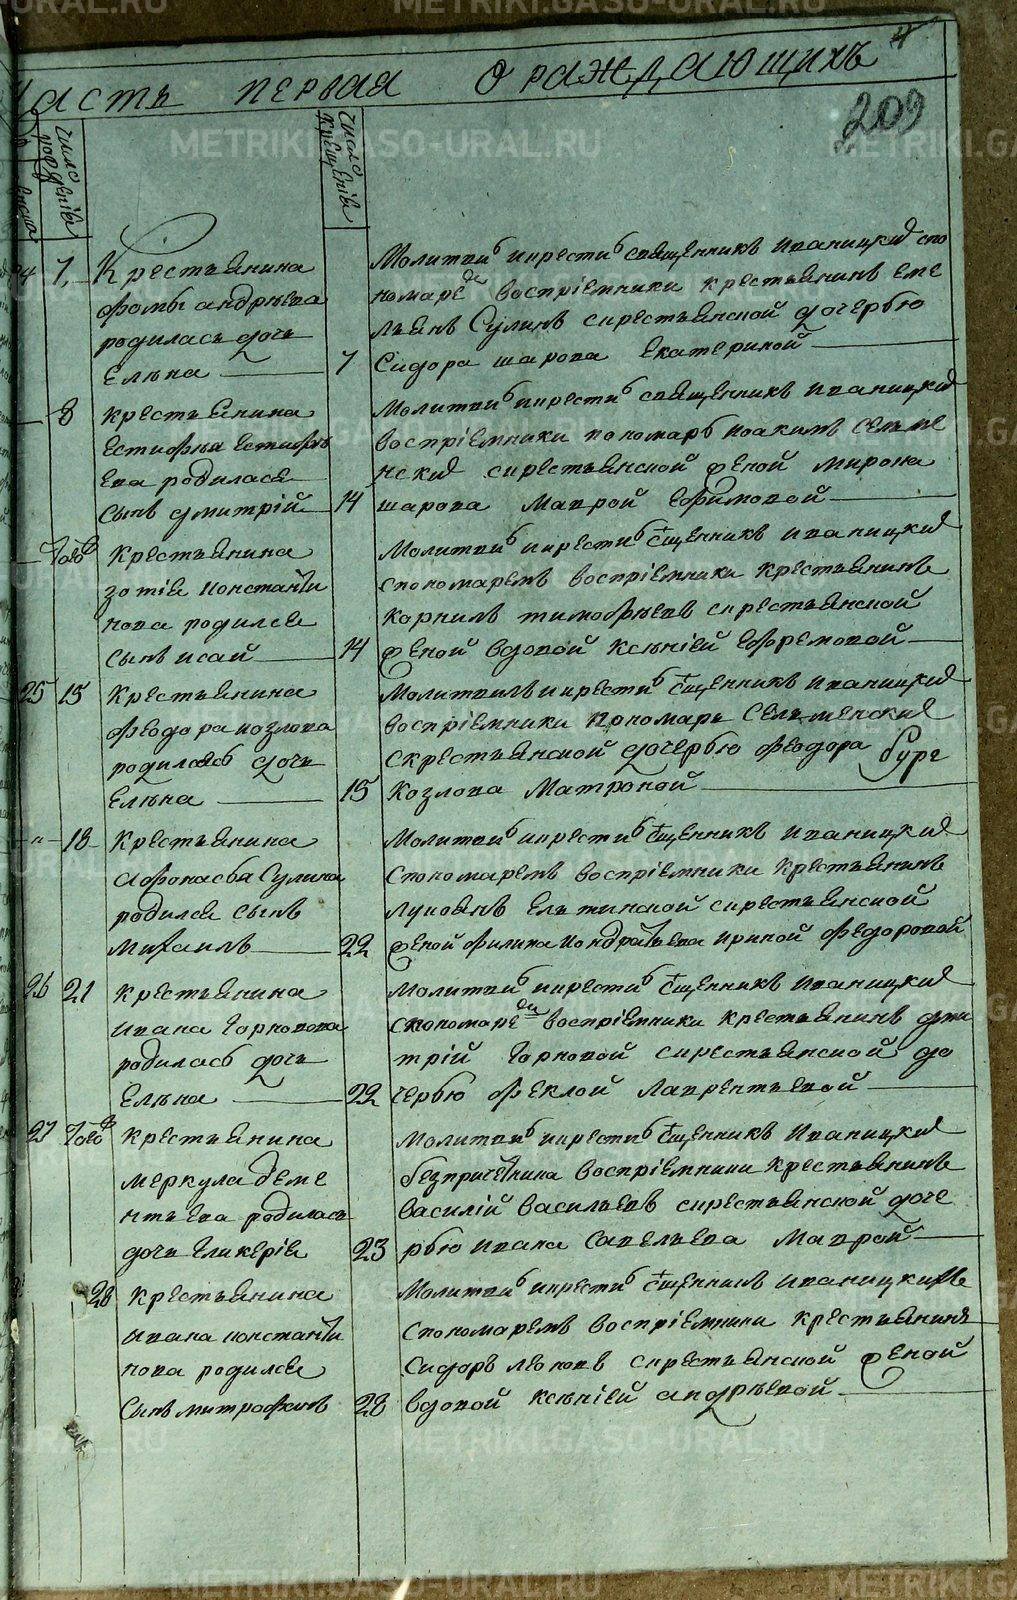 4
Часть первая о раждающихъ
209
число рожденія
число крещенія
24 7. Крестьянина
фомы андрѣева
родилась дочь
Елѣна
Молитвиⷧ и крестиⷧ священникъ иваницкиⷨ спо
номареⷨ воспріемники крестьянинъ еме
льянъ Сулинъ скрестьянской дочерью
7 Сидора шарова Екатериной
8 Крестьянина
Естифѣя Естифѣ
ева родился
сынъ дмитрій
Молитвиⷧ и крестиⷧ священникъ иваницкиⷨ
воспріемники пономарь иоакимъ Сельме
нскиⷨ скрестьянской женой мирона
14 шарова Маврой Ефимовой
Тогоⷤ Крестьянина
зотія константи
нова родился
сынъ исай
Молитвиⷧ и крестиⷧ сщенникъ иваницкиⷨ
спономаремъ воспріемники крестьянинъ
корнилъ тимофѣевъ скрестьянской
14 женой вдовой Ксѣніей Ефремовой
25 15 Крестьянина
феодора козлова
родилась дочь
Елѣна
Молитвилъ и крестиⷧ сщенникъ иваницкиⷨ
воспріемники пономарь Сельменскиⷨ
скрестьянской дочерью феодора
15 Козлова Матроной
" 18 Крестьянина
афонасья Сулина
родился сынъ
михаилъ
Молитвиⷧ и крестиⷧ сщенникъ иваницкиⷨ
спономаремъ воспріемники крестьянинъ
лукоянъ скрестьянской
22 женой филипа кондратьева ириной федоровой
26 21 Крестьянина
ивана Горновова
родилась дочь
Елѣна
Молитвиⷧ и крестиⷧ сщенникъ иваницкиⷨ
спономареⷨ воспріемники крестьянинъ дми
трій Горновой скрестьянской до
22 черью феклой Лаврентьевой
27 Тогоⷤ Крестьянина
меркула деме
нтьева родилась
дочь Гликерія
Молитвиⷧ и крестиⷧ сщенникъ иваницкиⷨ
безпричетника воспріемники крестьянинъ
василій васильевъ скрестьянской доче
23 рью ивана Савельева Маврой
28 Крестьянина
ивана константи
нова родился
сынъ митрофанъ
Молитвиⷧ и крестиⷧ сщенникъ иваницкимъ
спономаремъ воспріемники крестьянинъ
Сидоръ леоновъ скрестьянской женой
28 вдовой Ксѣніей андрѣевой
METRIKI.GASO-URAL.RU